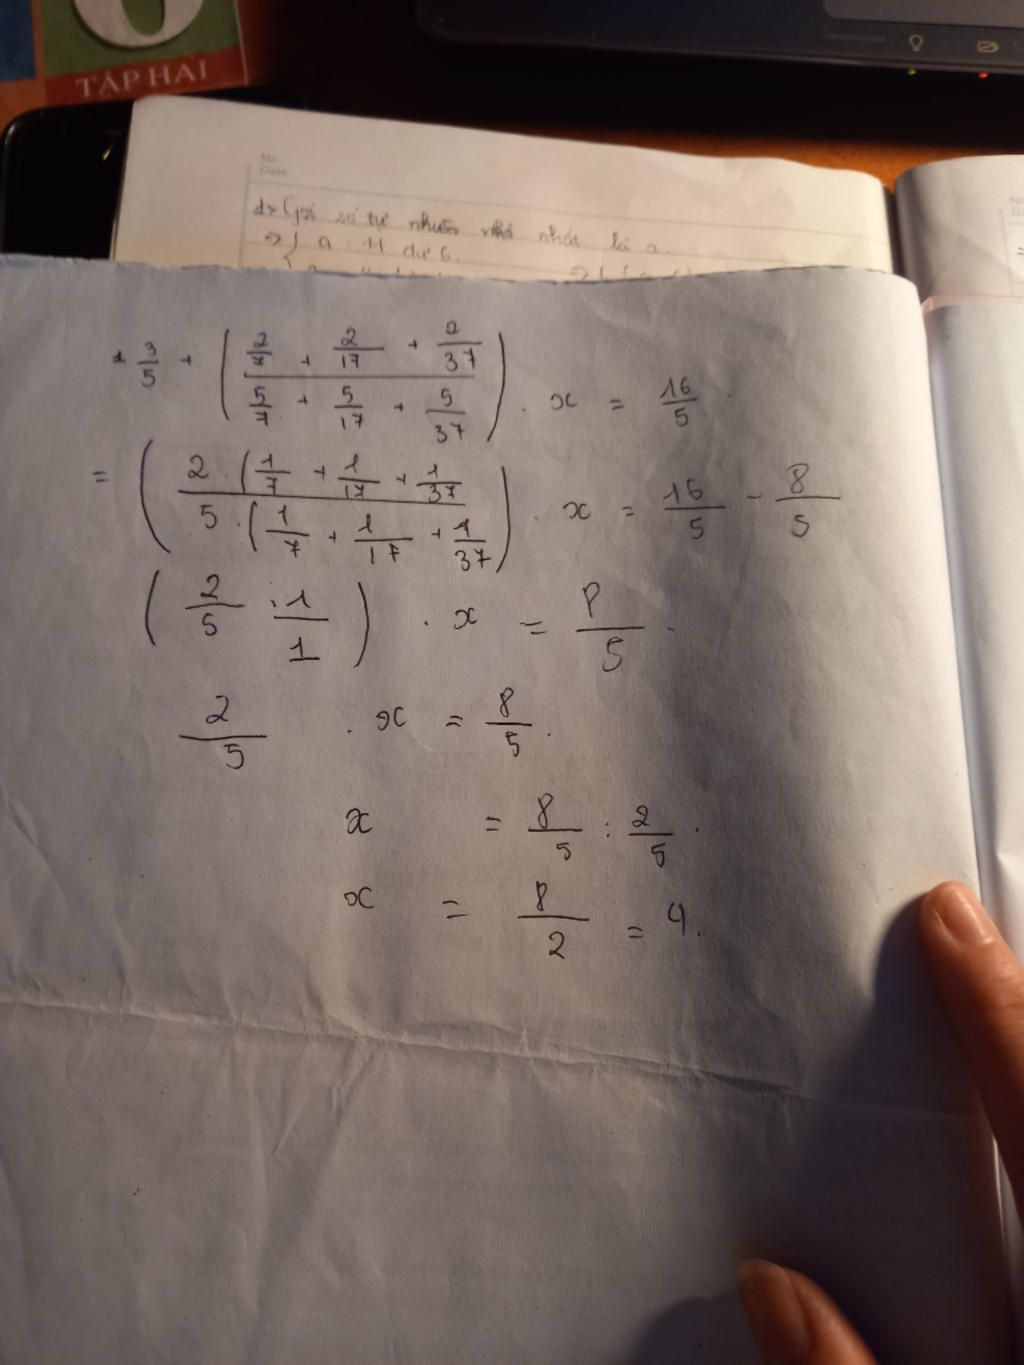 6
TẬP HAI
No.
Date
d> Gọi số tự nhiên nhỏ nhất là a.
=> { a : 11 dư 6.
1 3/5 + ( (2/7 + 2/17 + 2/37) / (5/7 + 5/17 + 5/37) ) . x = 16/5
= ( 2 . (1/7 + 1/17 + 1/37 / 5 . (1/7 + 1/17 + 1/37 ) . x = 16/5 - 8/5
( 2/5 . 1/1 ) . x = 8/5 .
2/5 . x = 8/5 .
x = 8/5 : 2/5 .
x = 8/2 = 4.